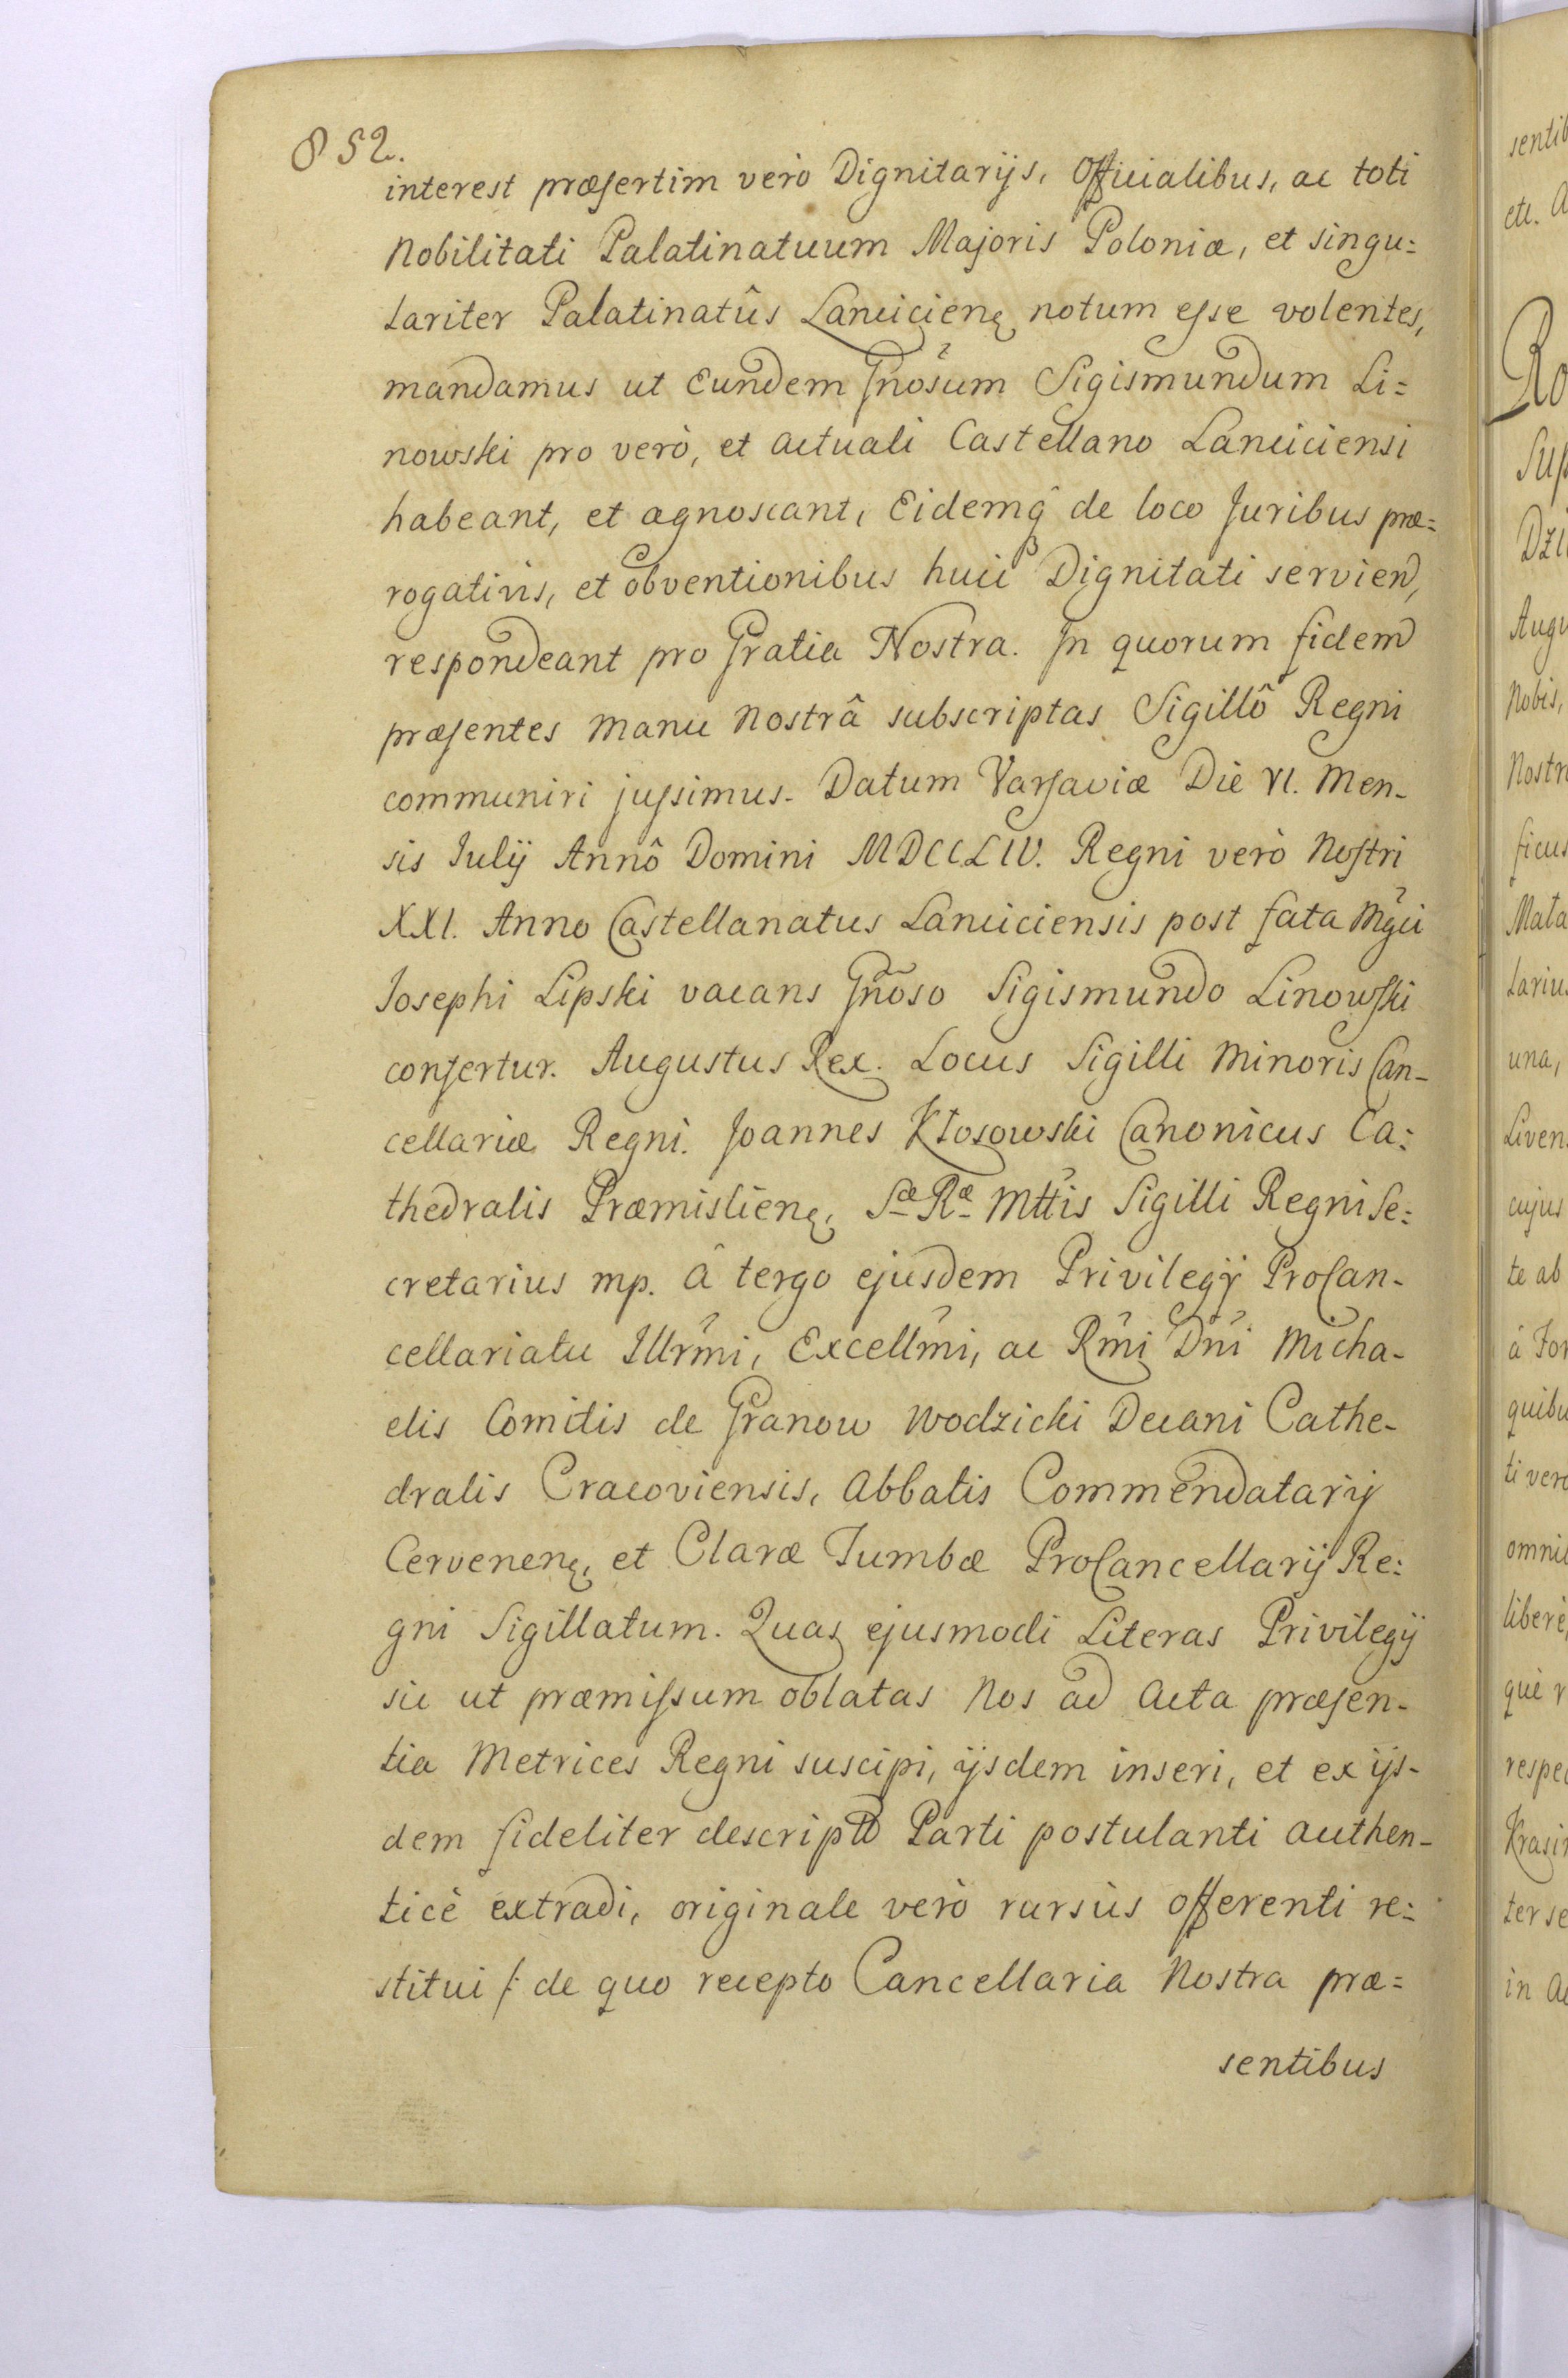 852.
interest præsertim verò Dignitarijs, Officialibus, ac toti
Nobilitati Palatinatuum Majoris Poloniæ, et singu=
lariter Palatinatûs Lancicienę notum esse volentes,
mandamus ut Eundem Gnõsum Sigismundum Li=
nowski pro verò, et actuali Castellano Lanciciensi
habeant, et agnoscant, Eidemq̃ de loco Juribus præ=
rogativis, et obventionibus huic Dignitati servien,
respondeant pro Gratia Nostra. In quorum fidem
præsentes Manu Nostrâ subscriptas Sigillô Regni
communiri jussimus. Datum Varsaviæ Die VI. Men-
sis Julij Annô Domini MDCCLIV. Regni verò Nostri
XXI. Anno Castellanatus Lanciciensis post fata Mgci
Josephi Lipski vacans Gnõso Sigismundo Linowski
confertur. Augustus Rex. Locus Sigilli Minoris Can-
cellariæ Regni. Joannes Kłosowski Canonicus Ca=
thedralis Præmislienę, Sæ Ræ Mttis Sigilli Regni Se=
cretarius mp. â tergo ejusdem Privilegij ProCan-
cellariatu Illrm̃i, Excellm̃i, ac Rm̃i Dñi Micha-
elis Comitis de Granow Wodzicki Decani Cathe-
dralis Cracoviensis, Abbatis Commendatarij
Cervenenę, et Claræ Tumbæ ProCancellarij Re=
gni Sigillatum. Quas ejusmodi Literas Privilegij
sic ut præmissum oblatas Nos ad Acta præsen-
tia Metrices Regni suscipi, ijsdem inseri, et ex ijs-
dem fideliter descript Parti postulanti authen-
ticè extradi, originale verò rursùs offerenti re=
stitui /: de quo recepto Cancellaria Nostra præ=
sentibus